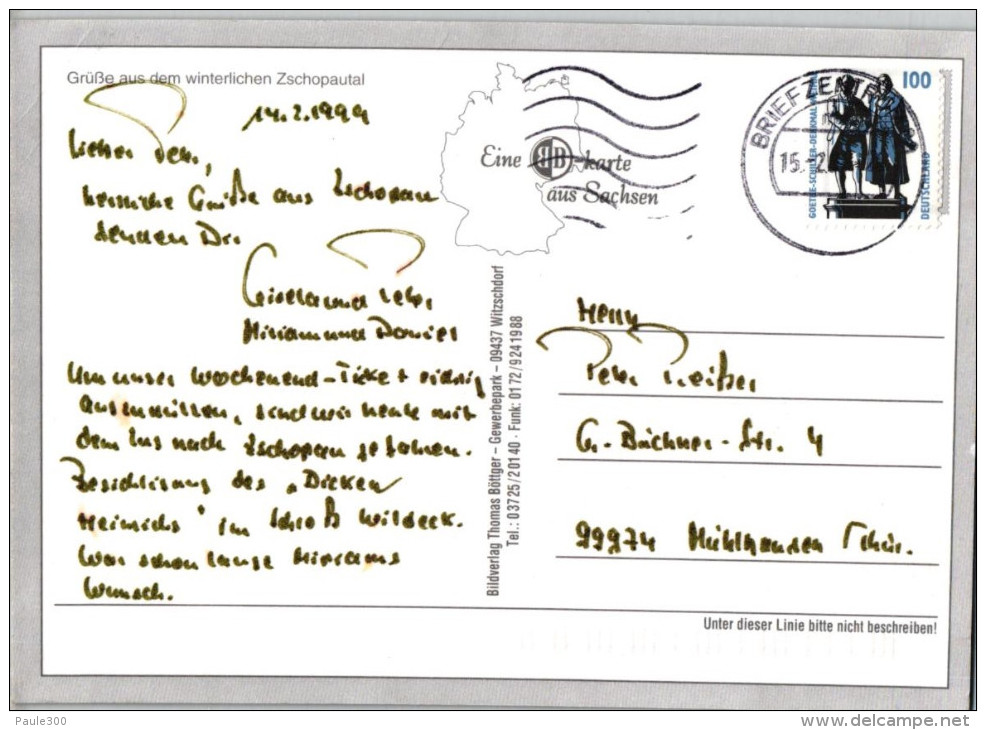 Grüße aus dem winterlichen Zschopautal
14.2.1999
Lieber Peter,
herzliche Grüße aus Zschopau
senden Dir
Gisela und Peter,
Miriam und Daniel
Um unser Wochenend-Ticket richtig
auszunutzen, sind wir heute mit
dem Zug nach Zschopau gefahren.
Besichtigung des „Dicken
Heinrichs" im Schloß Wildeck.
War schon lange Miriams
Wunsch.
Eine BB-karte
aus Sachsen
Bildverlag Thomas Böttger – Gewerbepark – 09437 Witzschdorf
Tel.: 03725/20140 · Funk: 0172/9241988
BRIEFZENTR
15. 2
100
GOETHE-SCHILLER-DENKMAL
DEUTSCHLAND
Herrn
Peter
G.-Büchner-Str. 4
99974 Mühlhausen Thür.
Unter dieser Linie bitte nicht beschreiben!
Paule300
www.delcampe.net